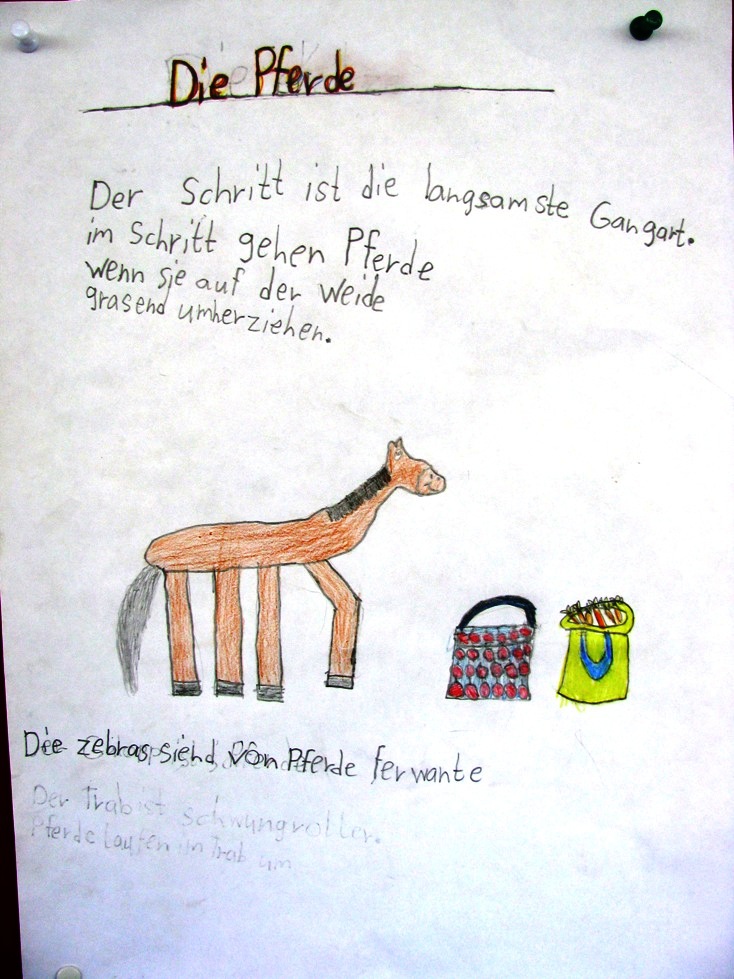 Die Pferde
Der Schritt ist die langsamste Gangart.
im Schritt gehen Pferde
wenn sie auf der Weide
grasend umherziehen.
Die zebras siend von Pferde ferwante
Der Trab ist schwungvoller.
Pferde laufen im Trab um